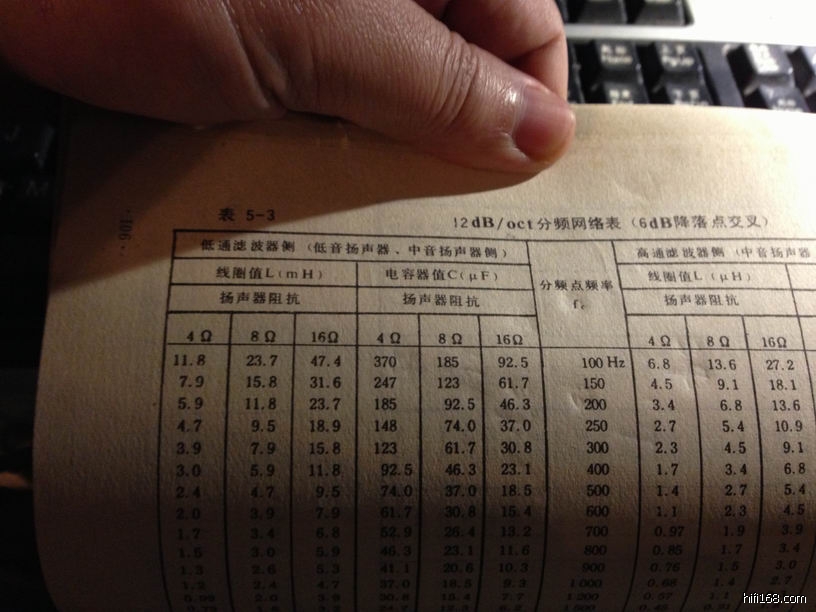 ·106·
表 5-3 12dB/oct分频网络表（6dB降落点交叉）
低通滤波器侧（低音扬声器、中音扬声器侧） 分频点频率 fc 高通滤波器侧（中音扬声器
线圈值L(mH) 电容器值C(μF) 线圈值L（μH）
扬声器阻抗 扬声器阻抗 扬声器阻抗
4Ω 8Ω 16Ω 4Ω 8Ω 16Ω 4Ω 8Ω 16Ω
11.8 23.7 47.4 370 185 92.5 100 Hz 6.8 13.6 27.2
7.9 15.8 31.6 247 123 61.7 150 4.5 9.1 18.1
5.9 11.8 23.7 185 92.5 46.3 200 3.4 6.8 13.6
4.7 9.5 18.9 148 74.0 37.0 250 2.7 5.4 10.9
3.9 7.9 15.8 123 61.7 30.8 300 2.3 4.5 9.1
3.0 5.9 11.8 92.5 46.3 23.1 400 1.7 3.4 6.8
2.4 4.7 9.5 74.0 37.0 18.5 500 1.4 2.7 5.4
2.0 3.9 7.9 61.7 30.8 15.4 600 1.1 2.3 4.5
1.7 3.4 6.8 52.9 26.4 13.2 700 0.97 1.9 3.9
1.5 3.0 5.9 46.3 23.1 11.6 800 0.85 1.7 3.4
1.3 2.6 5.3 41.1 20.6 10.3 900 0.76 1.5 3.0
1.2 2.4 4.7 37.0 18.5 9.3 1000 0.68 1.4 2.7
0.99 2.0 3.9 30.8 15.4 7.7 1200 0.57 1.1
hifi168.com